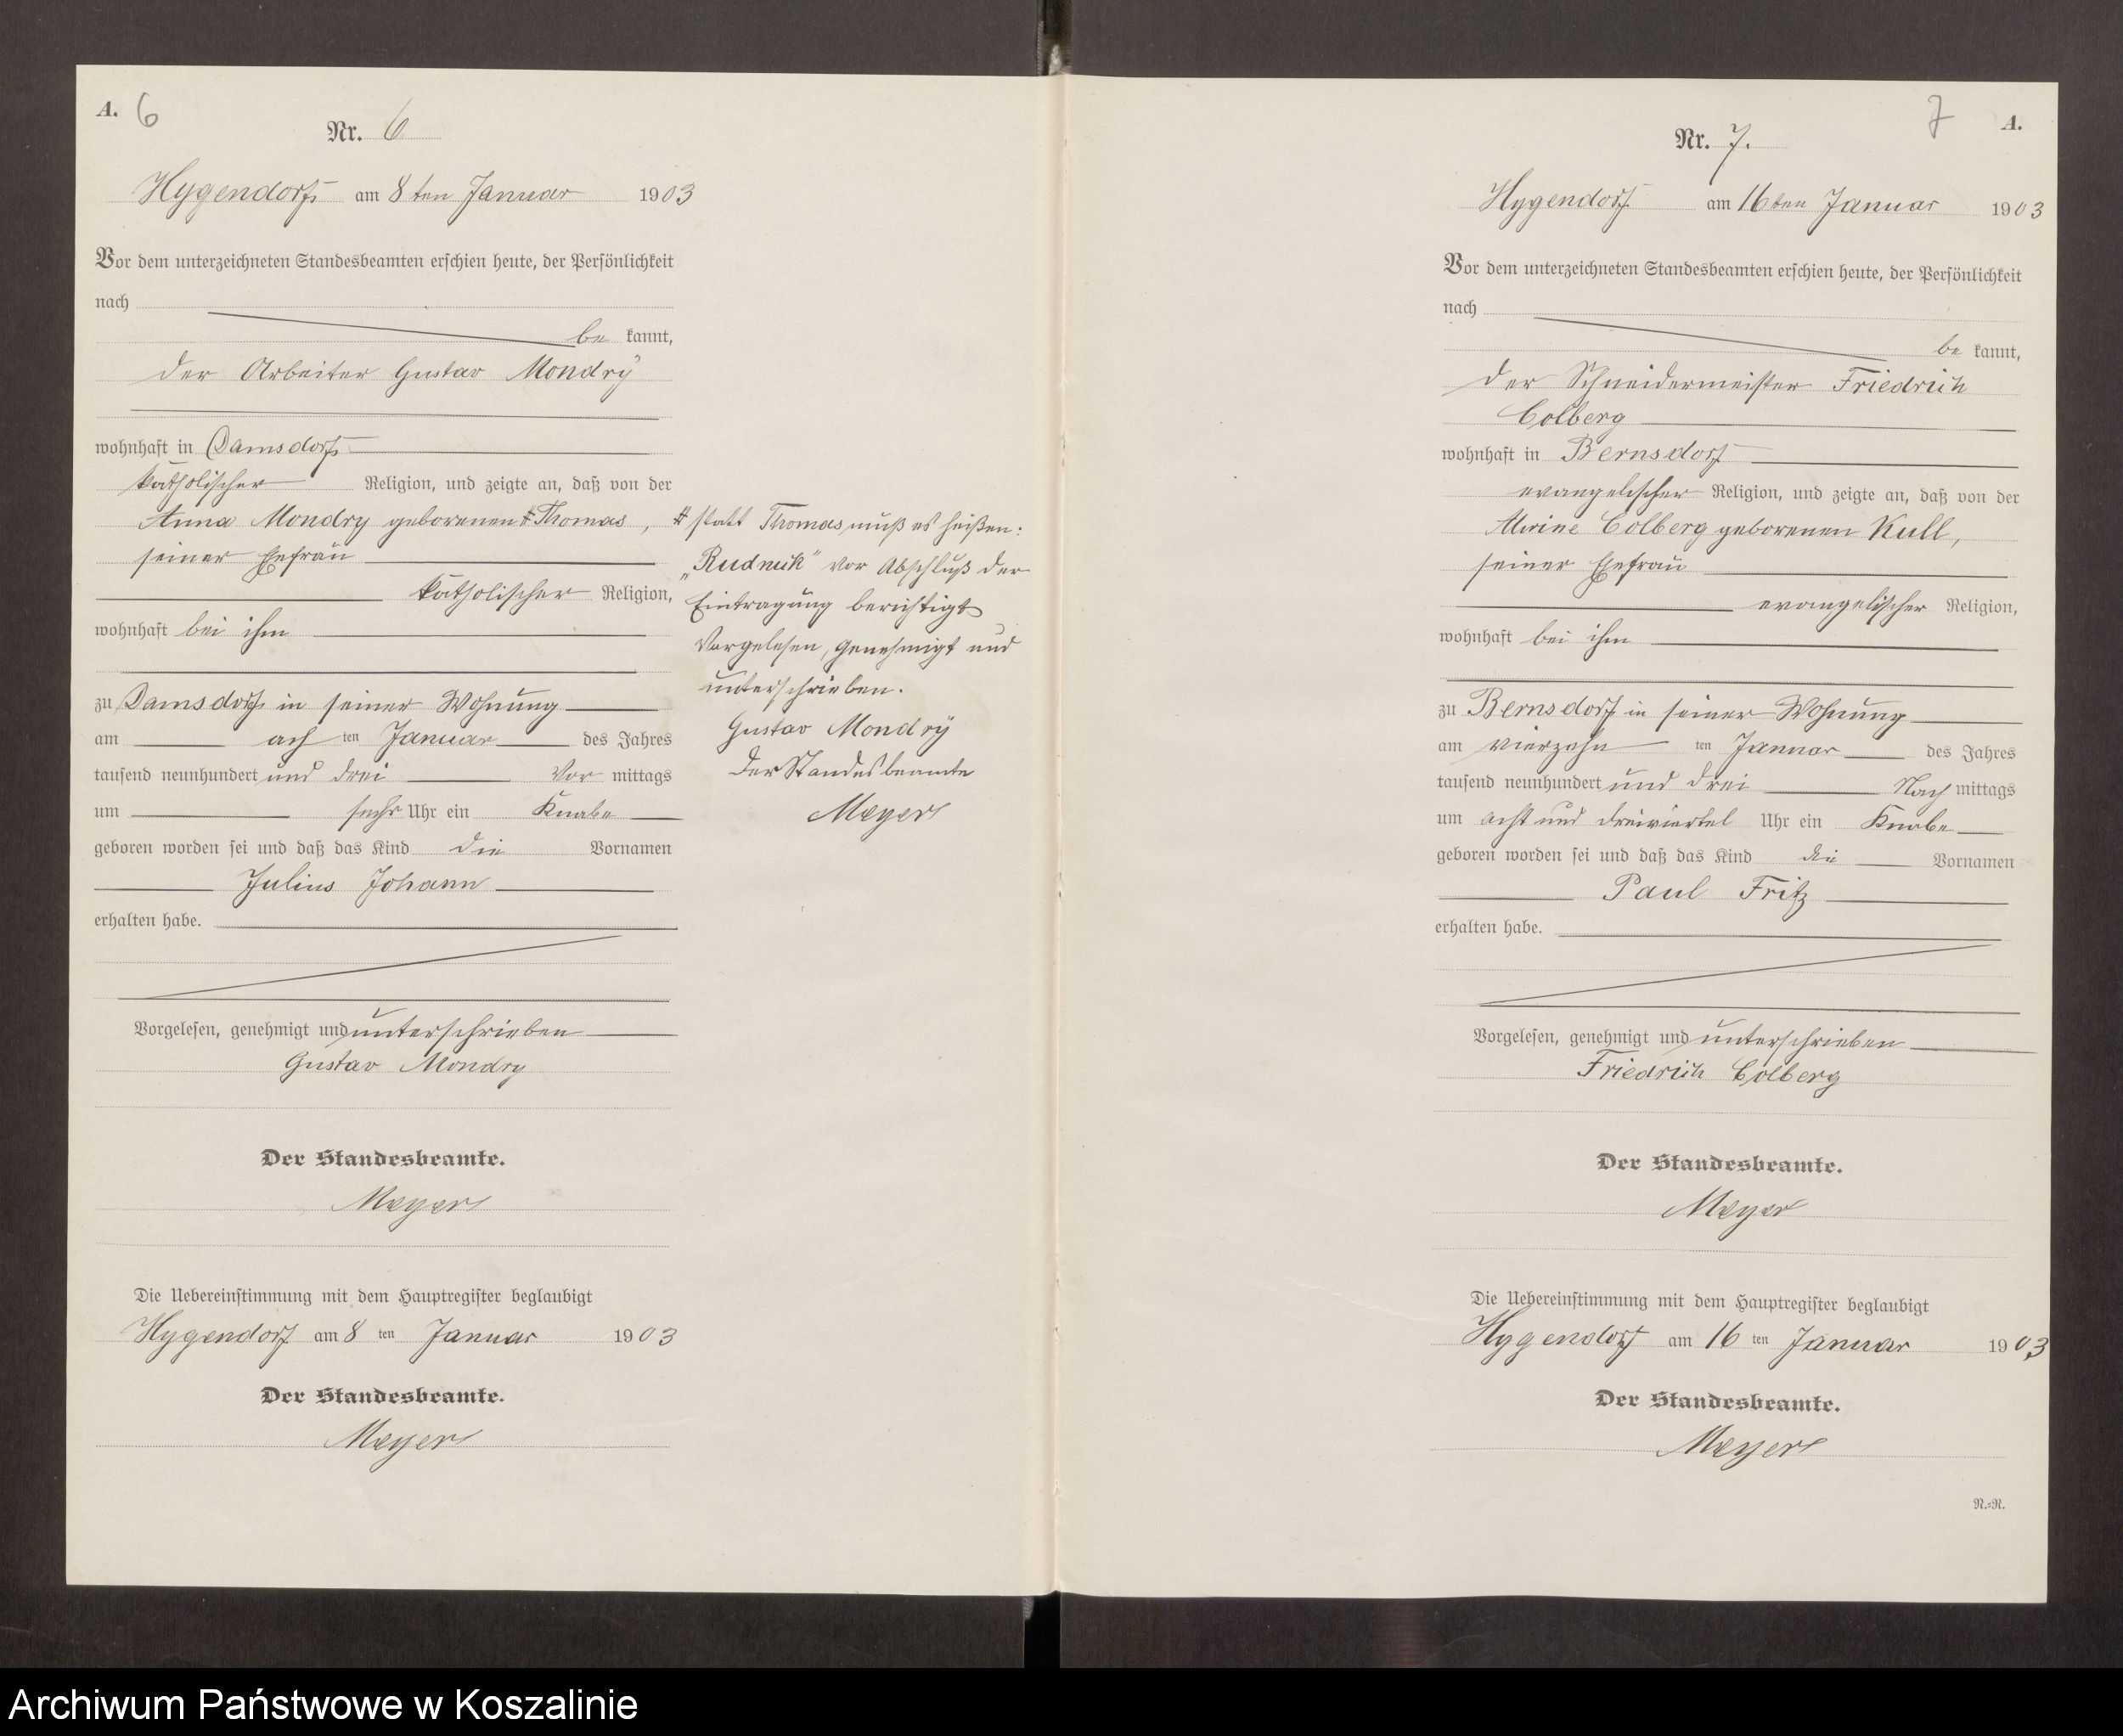 A. 6
Nr. 6
Hygendorf am 8ten Januar 1903
Vor dem unterzeichneten Standesbeamten erschien heute, der Persönlichkeit
nach
be kannt,
der Arbeiter Gustav Mondry
wohnhaft in Damsdorf
katholischer Religion, und zeigte an, daß von der
Anna Mondry geborenen # Thomas,
seiner Ehefrau
katholischer Religion,
wohnhaft bei ihm
zu Damsdorf in seiner Wohnung
am ach ten Januar des Jahres
tausend neunhundert und drei Vor mittags
um sechs Uhr ein Knabe
geboren worden sei und daß das Kind die Vornamen
Julius Johann
erhalten habe.
Vorgelesen, genehmigt und unterschrieben
Gustav Mondry
Der Standesbeamte.
Meyer
Die Uebereinstimmung mit dem Hauptregister beglaubigt
Hygendorf am 8 ten Januar 1903
Der Standesbeamte.
Meyer
# statt Thomas muß es heißen:
„Rudnick" vor Abschluß der
Eintragung berichtigt
Vorgelesen, genehmigt und
unterschrieben.
Gustav Mondry
Der Standesbeamte
Meyer
7 A.
Nr. 7.
Hygendorf am 16ten Januar 1903
Vor dem unterzeichneten Standesbeamten erschien heute, der Persönlichkeit
nach
be kannt,
der Schneidermeister Friedrich
Colberg
wohnhaft in Bernsdorf
evangelischer Religion, und zeigte an, daß von der
Alwine Colberg geborenen Kull,
seiner Ehefrau
evangelischer Religion,
wohnhaft bei ihm
zu Bernsdorf in seiner Wohnung
am vierzehn ten Januar des Jahres
tausend neunhundert und drei Nach mittags
um acht und dreiviertel Uhr ein Knabe
geboren worden sei und daß das Kind die Vornamen
Paul Fritz
erhalten habe.
Vorgelesen, genehmigt und unterschrieben
Friedrich Colberg
Der Standesbeamte.
Meyer
Die Uebereinstimmung mit dem Hauptregister beglaubigt
Hygendorf am 16 ten Januar 1903
Der Standesbeamte.
Meyer
N.=N.
Archiwum Państwowe w Koszalinie